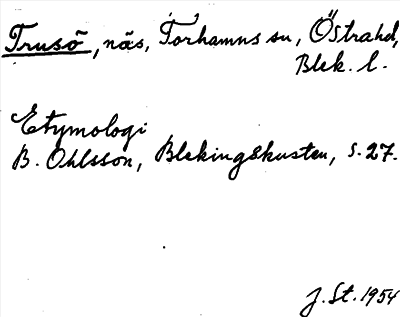 Trusö, näs, Torhamns sn, Östra hd,
Blek. l.
Etymologi
B. Ohlsson, Blekingskusten, s. 27.
J. St. 1954